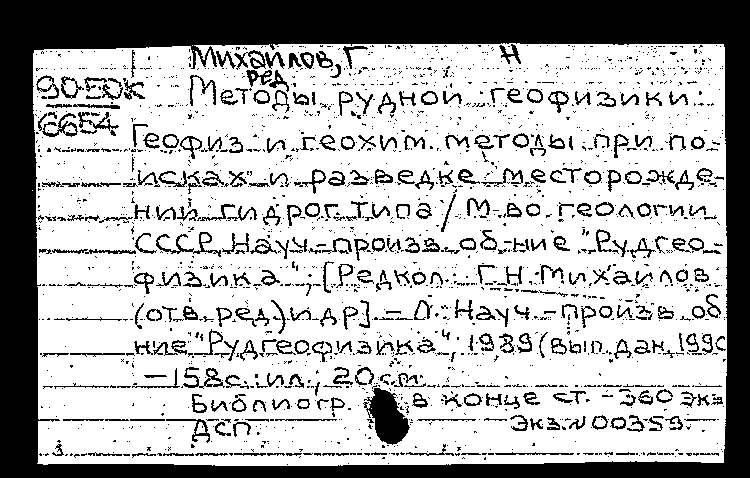 Михайлов, Г Н
ред
90-50К Методы рудной геофизики:
6654 Геофиз и геохим. методы при по-
исках и разведке месторожде-
ний гидрог. типа / М-во геологии
СССР, Науч.-произв. об-ние "Рудгео-
физика"; [Редкол.: Г.Н. Михайлов
(отв. ред.) и др] - Л.: Науч.-произв об
ние "Рудгеофизика", 1989 (вып. дан. 1990
- 158с.: ил.; 20см.
Библиогр. в конце ст. - 360 экз
ДСП. Экз.N 00359.